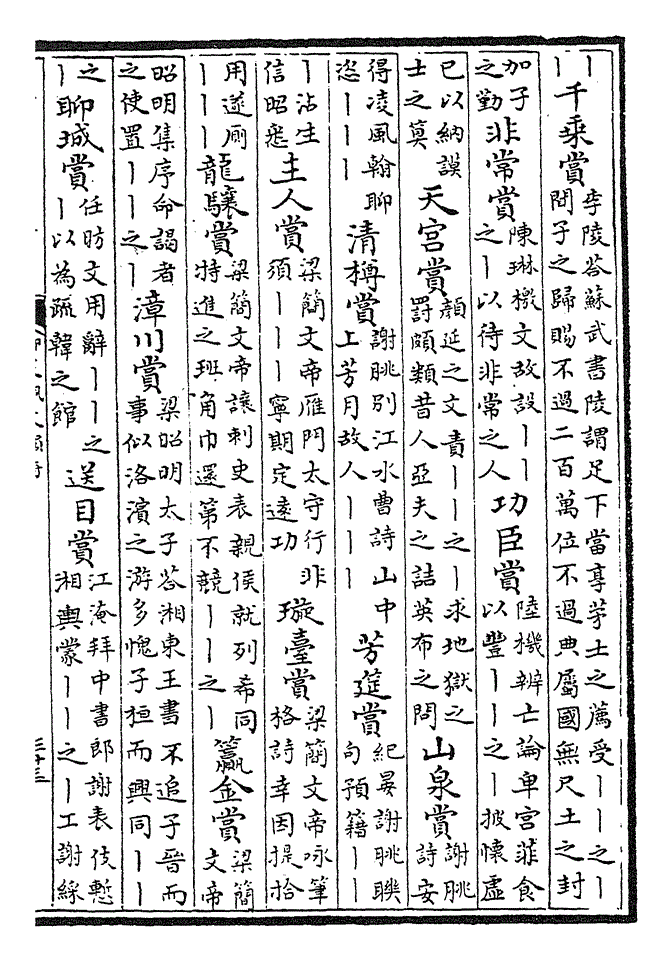 丨丨千乘賞李陵荅蘇武書陵謂足下當享茅土之薦受丨丨之丨聞子之歸賜不過二百萬位不過典屬國無尺土之封
加子之勤非常賞陳琳檄文故設丨丨之丨以待非常之人功臣賞陸機辨亡論卑宫菲食以豐丨丨之丨披懷虚
己以納謨士之算天宫賞顏延之文責丨丨之丨求地獄之罰頗類昔人亞夫之詰英布之問山泉賞謝朓詩安
得凌風翰聊恣丨丨丨清樽賞謝朓别江水曹詩山中上芳月故人丨丨丨芳筵賞紀晏謝朓聨句預籍丨丨
丨沾生信昭悉主人賞梁簡文帝雁門太守行非須丨丨丨寧期定遠功璇臺賞梁簡文帝咏筆格詩幸因提拾
用遂厠丨丨丨龍驤賞梁簡文帝讓刺史表親侯就列希同特進之班角巾還第不競丨丨之丨籯金賞梁簡文帝
昭明集序命謁者之使置丨丨之丨漳川賞梁昭明太子荅湘東王書不追子晉而事似洛濱之游多愧子桓而興同丨丨
之丨聊城賞任昉文用辭丨丨之丨以為疏韓之館送目賞江淹拜中書郎謝表伎慙湘輿蒙丨丨之丨工謝綵